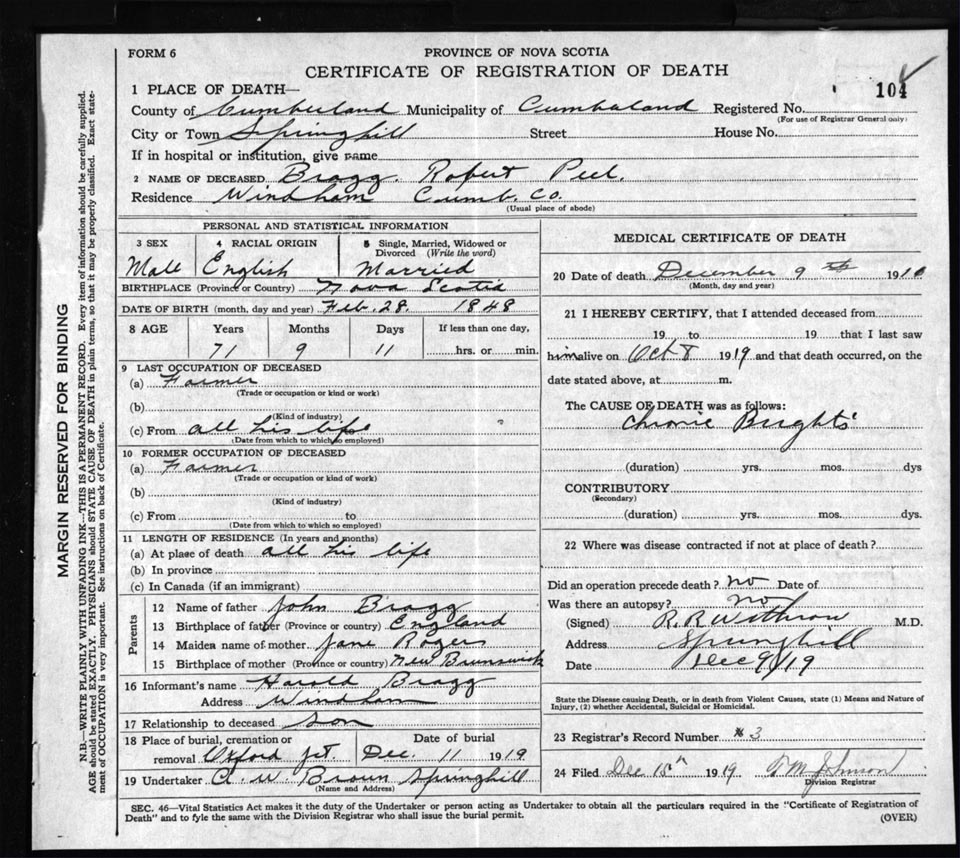 FORM 6
PROVINCE OF NOVA SCOTIA
CERTIFICATE OF REGISTRATION OF DEATH
104
1 PLACE OF DEATH—
County of Cumberland Municipality of Cumberland Registered No.
(For use of Registrar General only)
City or Town Springhill Street House No.
If in hospital or institution, give name
2 NAME OF DECEASED Bragg. Robert Peel.
Residence Windham Cumb. Co.
(Usual place of abode)
PERSONAL AND STATISTICAL INFORMATION
3 SEX 4 RACIAL ORIGIN 5 Single, Married, Widowed or
Divorced (Write the word)
Male English Married
BIRTHPLACE (Province or Country) Nova Scotia
DATE OF BIRTH (month, day and year) Feb. 28. 1848
8 AGE Years Months Days If less than one day,
71 9 11 hrs. or min.
9 LAST OCCUPATION OF DECEASED
(a) Farmer
(Trade or occupation or kind or work)
(b)
(Kind of industry)
(c) From all his life
(Date from which to which so employed)
10 FORMER OCCUPATION OF DECEASED
(a) Farmer
(Trade or occupation or kind of work)
(b)
(Kind of industry)
(c) From to
(Date from which to which so employed)
11 LENGTH OF RESIDENCE (In years and months)
(a) At place of death all his life
(b) In province
(c) In Canada (if an immigrant)
Parents
12 Name of father John Bragg
13 Birthplace of father (Province or country) England
14 Maiden name of mother Jane Rogers
15 Birthplace of mother (Province or country) New Brunswick
16 Informant's name Harold Bragg
Address Windham
17 Relationship to deceased son
18 Place of burial, cremation or Date of burial
removal Oxford Jct. Dec. 11 1919
19 Undertaker C. W. Brown Springhill
(Name and Address)
MEDICAL CERTIFICATE OF DEATH
20 Date of death December 9th 191
(Month, day and year)
21 I HEREBY CERTIFY, that I attended deceased from
19 to 19 that I last saw
him alive on Oct 8 1919 and that death occurred, on the
date stated above, at m.
The CAUSE OF DEATH was as follows:
Chronic Brights'
(duration) yrs. mos. dys
CONTRIBUTORY
(Secondary)
(duration) yrs. mos. dys.
22 Where was disease contracted if not at place of death?
Did an operation precede death? no Date of
Was there an autopsy? no
(Signed) R. R. Withrow M.D.
Address Springhill
Date Dec 9/19
State the Disease causing Death, or in death from Violent Causes, state (1) Means and Nature of
Injury, (2) whether Accidental, Suicidal or Homicidal.
23 Registrar's Record Number #3
24 Filed Dec 15th 1919 Johnson
Division Registrar
SEC. 46—Vital Statistics Act makes it the duty of the Undertaker or person acting as Undertaker to obtain all the particulars required in the "Certificate of Registration of
Death" and to fyle the same with the Division Registrar who shall issue the burial permit.
(OVER)
MARGIN RESERVED FOR BINDING
N.B.—WRITE PLAINLY WITH UNFADING INK—THIS IS A PERMANENT RECORD. Every item of information should be carefully supplied.
AGE should be stated EXACTLY. PHYSICIANS should STATE CAUSE OF DEATH in plain terms, so that it may be properly classified. Exact state-
ment of OCCUPATION is very important. See instructions on back of Certificate.